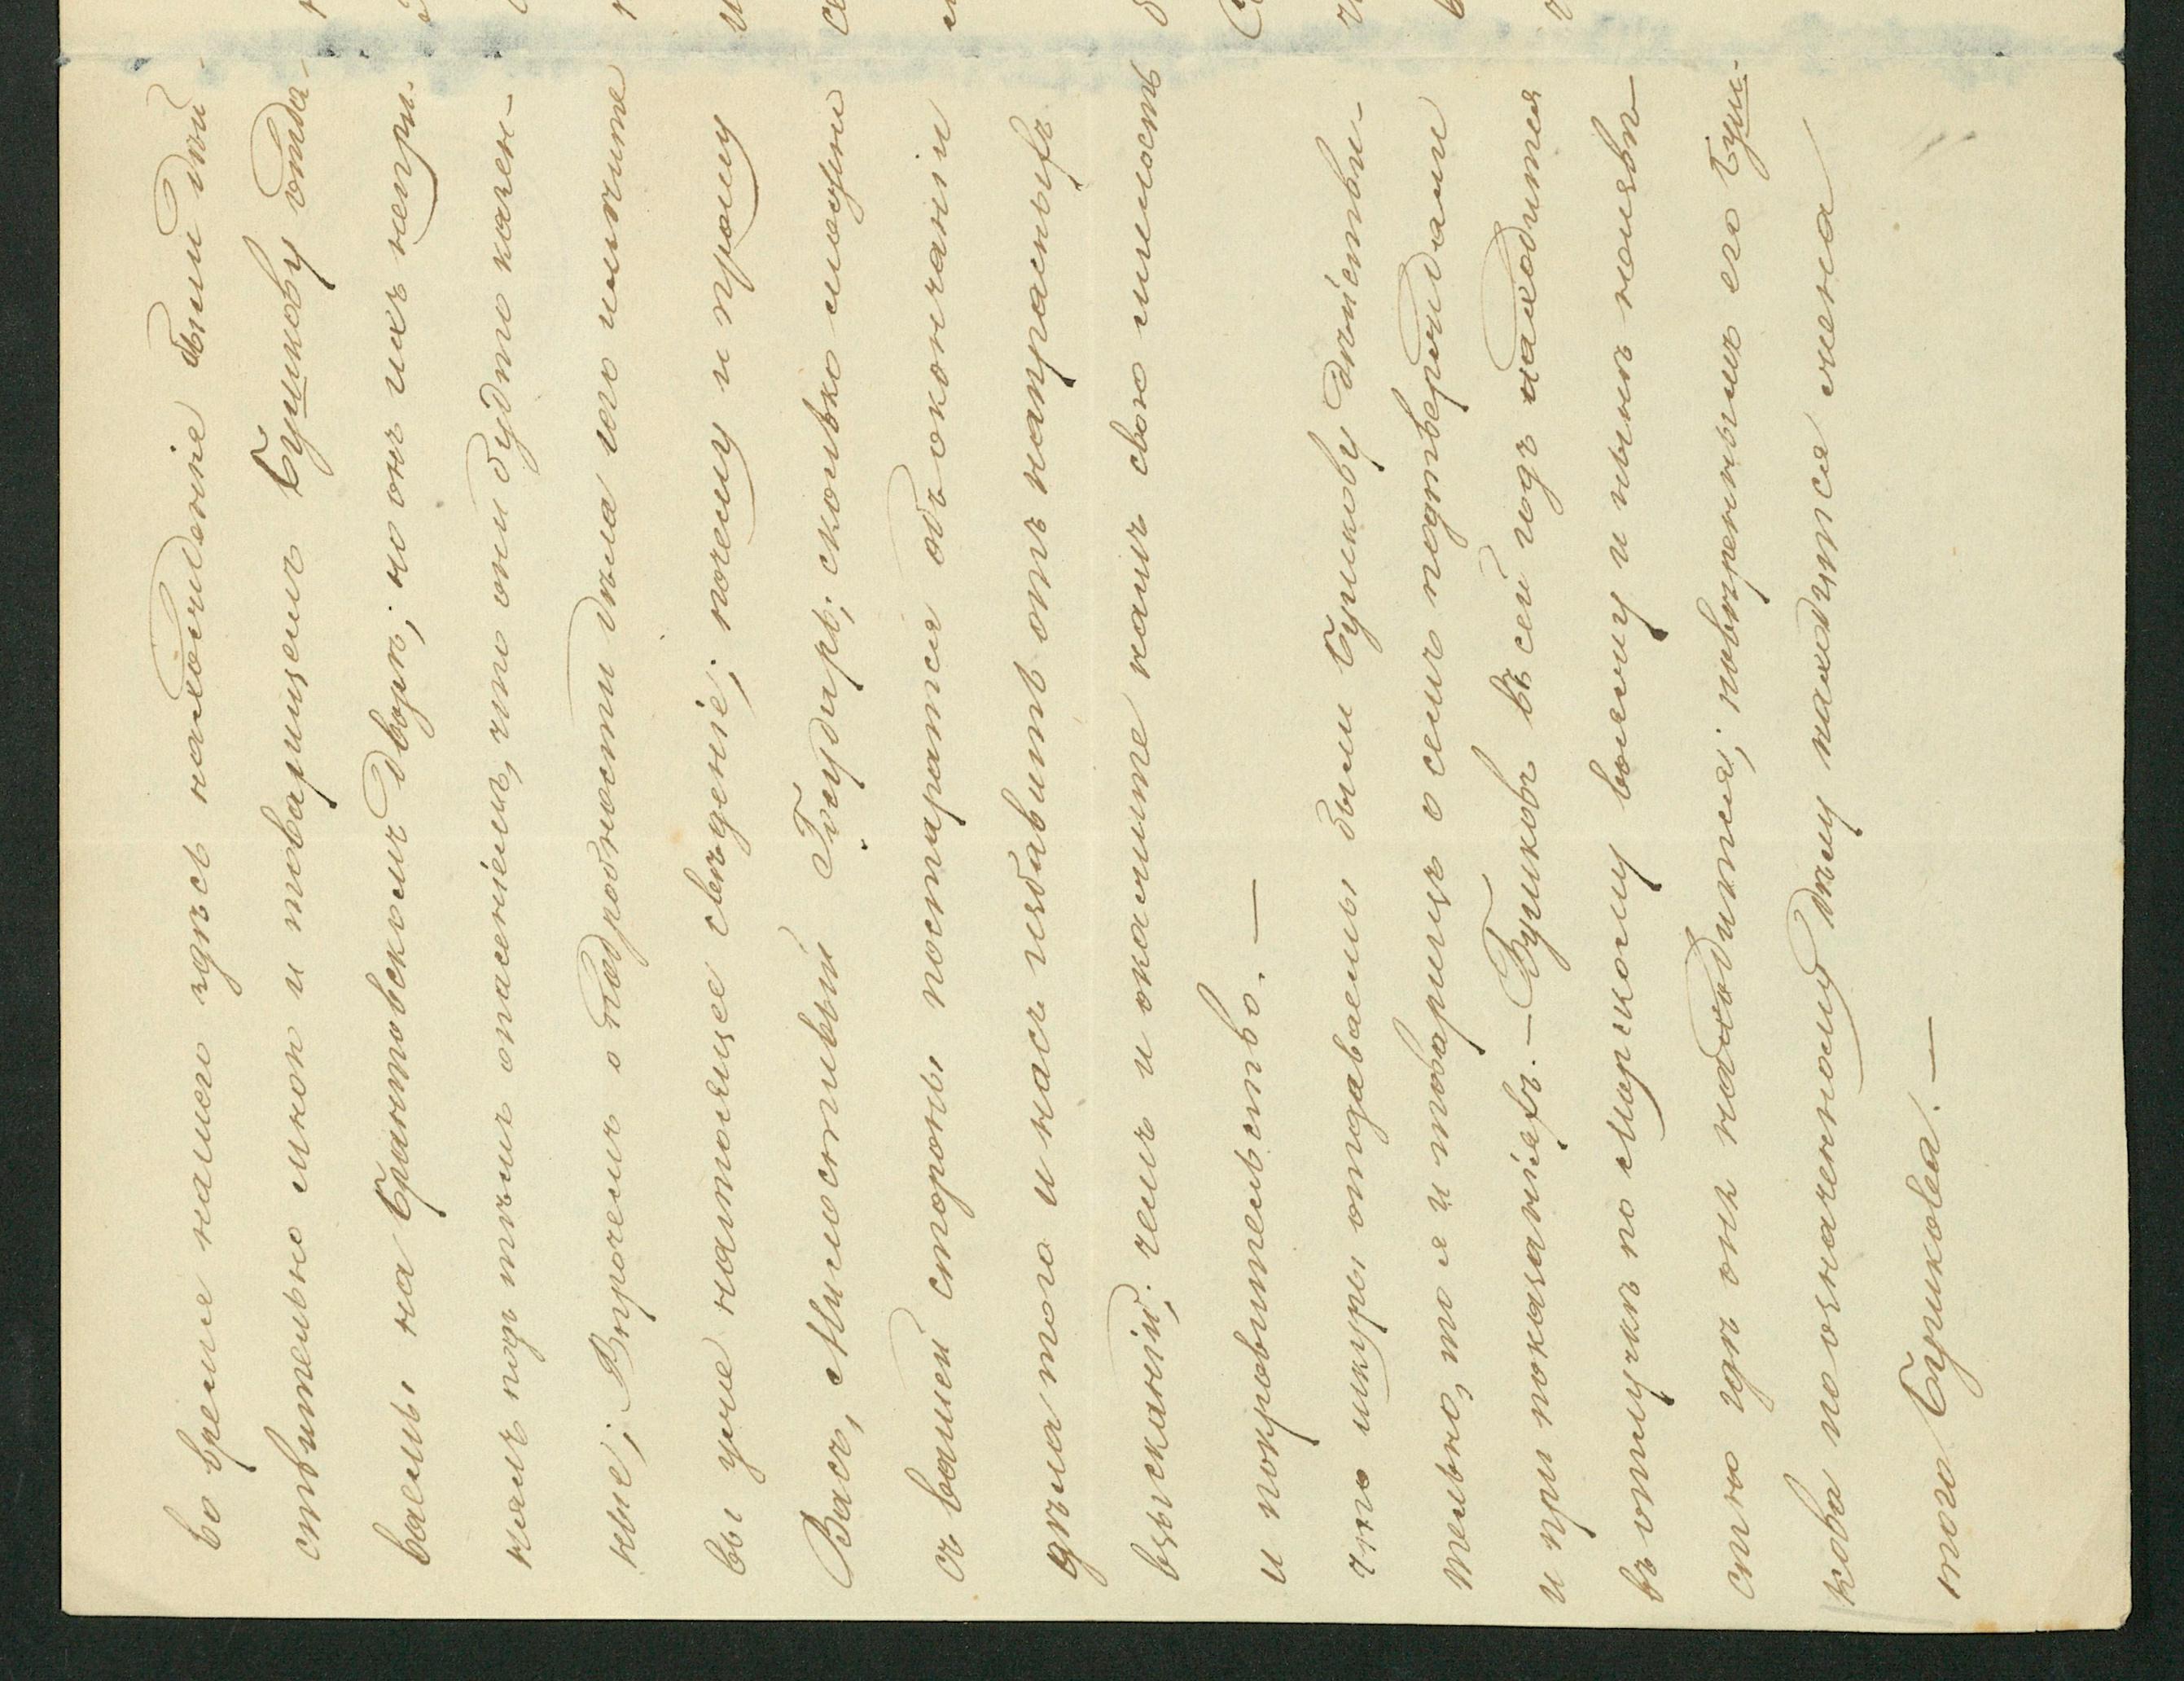 во время нашего здѣсь нахожденіе были дѣй-
ствительно мною и товарищемъ Бушкову отда-
ваемы на Брантовскомъ дворѣ; но онъ ихъ непри-
нялъ подъ тѣмъ опасеніемъ, что они будто кален-
ные; Впрочемъ о подробности дѣла его имѣите
вы уже настоящее свѣденіе; почему и прошу
Васъ, Милостивый Государь, сколько можно
съ вашей стороны постаратся объ окончаніи
дѣла того и насъ избавить отъ напрасныхъ
взысканій; чемъ и окажите намъ свою милость
и покровительство. —
что шкуры отдаваемы были Бушкову дѣйстви-
тельно, то я и товарищъ о семъ подтверждаем
и при показаніяхъ. — Бушковъ въ сей годъ находится
въ отлучкѣ по Морскому вояжу и нынѣ неизвѣ-
стно гдѣ онъ находится; повѣреннымъ его Буш-
кова по означенному дѣлу находится жена
того Бушкова. —